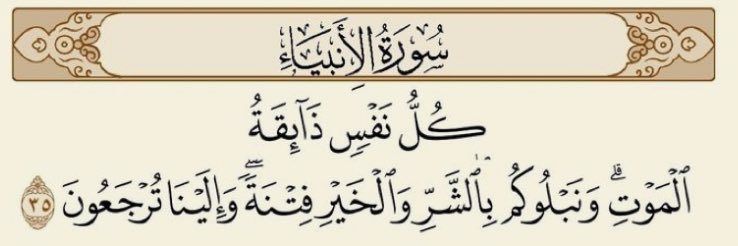 سُورَةُ الأَنبِيَاءِ
كُلُّ نَفۡسٖ ذَآئِقَةُ
ٱلۡمَوۡتِۗ وَنَبۡلُوكُم بِٱلشَّرِّ وَٱلۡخَيۡرِ فِتۡنَةٗۖ وَإِلَيۡنَا تُرۡجَعُونَ ٣٥